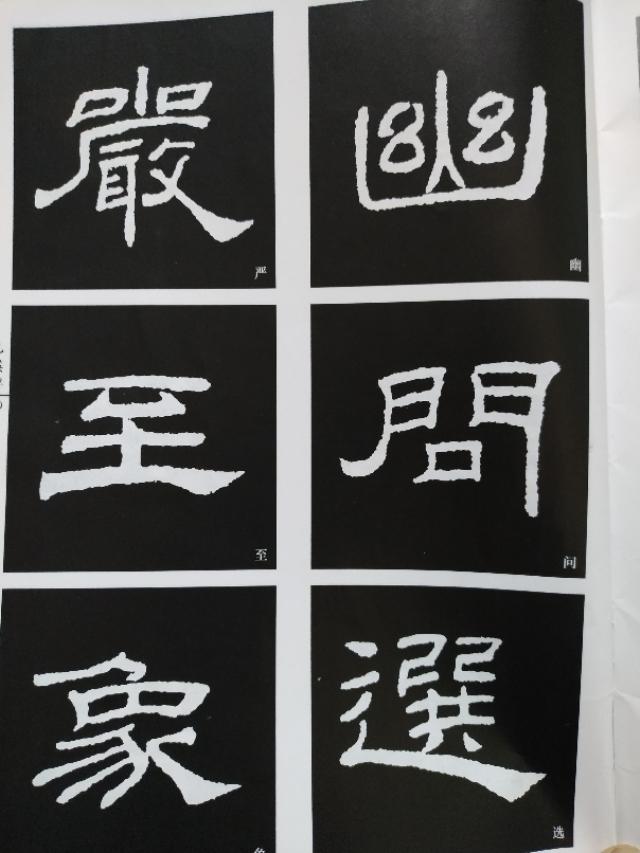 幽
幽
問
问
選
选
嚴
严
至
至
象